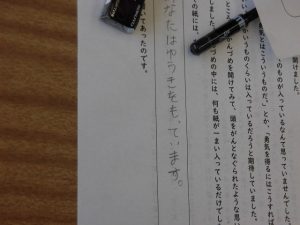 開けました。
のものが入っているなんて思っていませんでした。
勇気とはこういうものだ。」とか、「勇気を得るにはこうすれば
いうものくらいは入っているだろうと期待していました。
ところ かんづめを開けてみて、頭をがんとなぐられたような思い
しました。 づめの中には、何も紙が一まい入っているだけでし
の紙には、
なたはゆうきをもっています。
てあったのです。